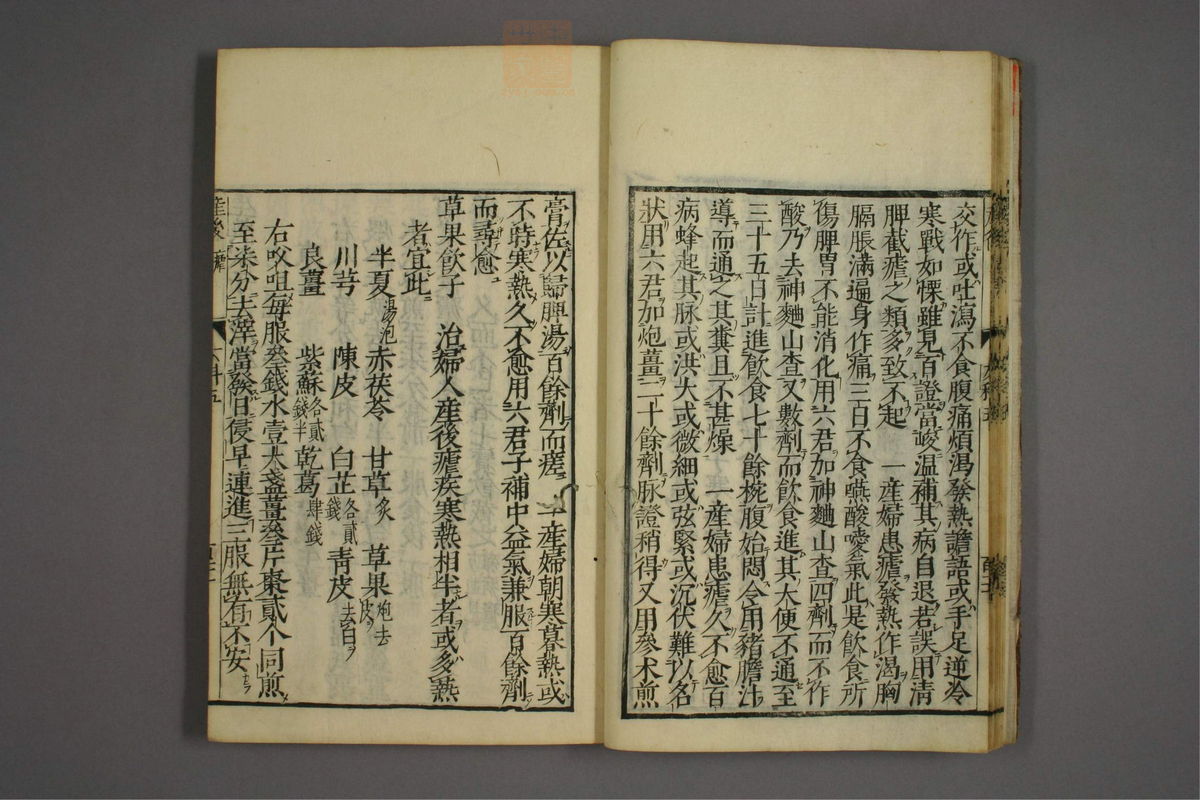 交作或吐瀉不食腹痛煩渴發熱譫語或手足逆冷
寒戰如慄雖見百證當峻温補其病自退若誤用清
脾截瘧之類多致不起　一産婦患瘧發熱作渴胸
膈脹滿遍身作痛三日不食嚥酸噯氣此是飲食所
傷脾胃不能消化用六君加神麯山查四劑而不作
酸乃去神麯山查又數劑而飲食進其大便不通至
三十五日計進飲食七十餘椀腹始悶令用豬膽汁
導而通之其糞且不甚燥　一産婦患瘧久不愈百
病蜂起其脉或洪大或微細或弦緊或沉伏難以名
狀用六君加炮薑二十餘劑脉證稍得又用參朮煎
膏佐以歸脾湯百餘劑而瘥　一産婦朝寒暮熱或
不時寒熱久不愈用六君子補中益氣兼服百餘劑
而尋愈
草果飲子　治婦人産後瘧疾寒熱相半者或多熱
者宜此
半夏湯泡　赤茯苓　甘草炙　草果炮去皮
川芎　陳皮　白芷各貳錢　青皮去白
良薑　紫蘇各貳錢半　乾葛肆錢
右㕮咀每服叄錢水壹大盞薑叄片棗貳个同煎
至柒分去滓當發日侵早連進三服無有不安